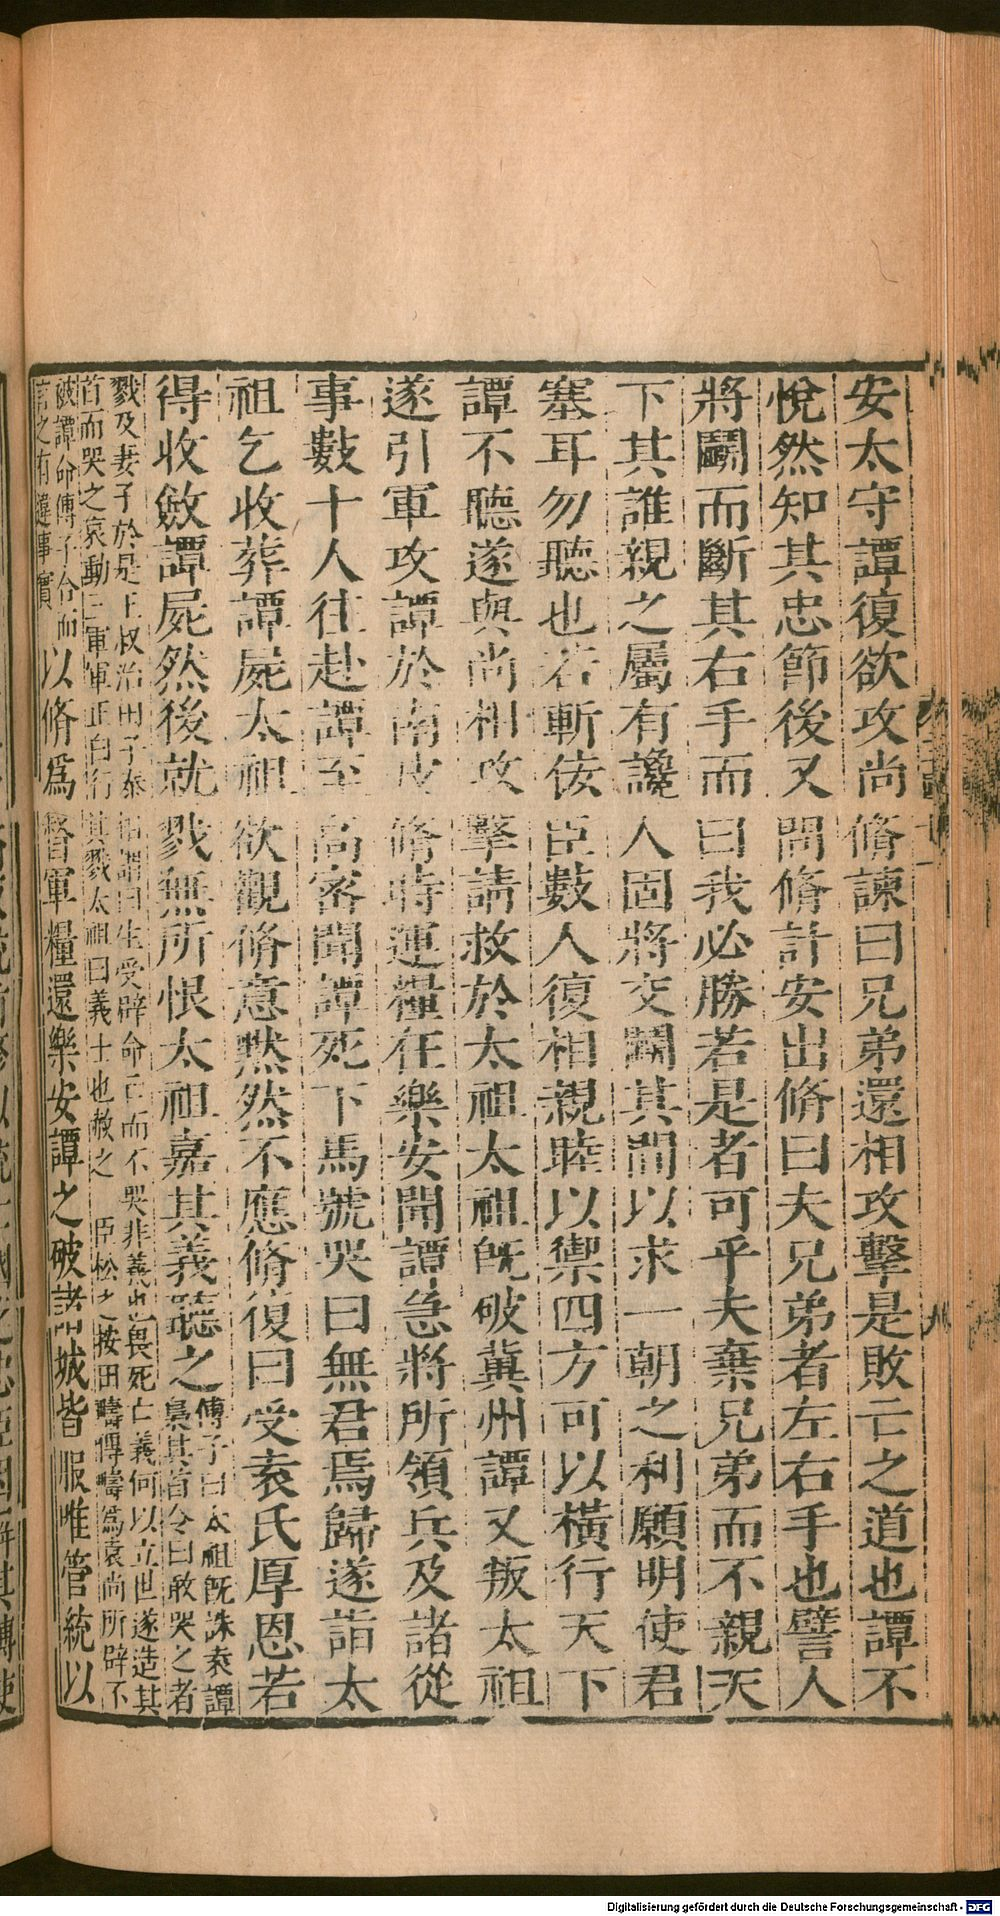 安太守譚復欲攻尚脩諫曰兄弟還相攻擊是敗亡之道也譚不
悅然知其忠節後又問脩計安出脩曰夫兄弟者左右手也譬人
將鬭而斷其右手而曰我必勝若是者可乎夫棄兄弟而不親天
下其誰親之屬有讒人固將交鬭其間以求一朝之利願明使君
塞耳勿聽也若斬佞臣數人復相親睦以禦四方可以橫行天下
譚不聽遂與尚相攻擊請救於太祖太祖旣破冀州譚又叛太祖
遂引軍攻譚於南皮脩時運糧在樂安聞譚急將所領兵及諸從
事數十人往赴譚至高密聞譚死下馬號哭曰無君焉歸遂詣太
祖乞收葬譚屍太祖欲觀脩意默然不應脩復曰受袁氏厚恩若
得收斂譚屍然後就戮無所恨太祖嘉其義聽之
傅子曰太祖旣誅袁譚
梟其首令曰敢哭之者
戮及妻子於是王叔治田子泰相謂曰生受辟命亡而不哭非義也畏死亡義何以立世遂造其
首而哭之哀動三軍軍正白行其戮太祖曰義士也赦之 臣松之按田疇傳疇爲袁尚所辟不
被譚命傅子合而
言之有違事實
以脩爲督軍糧還樂安譚之破諸城皆服唯管統以
Digitalisierung gefördert durch die Deutsche Forschungsgemeinschaft - DFG